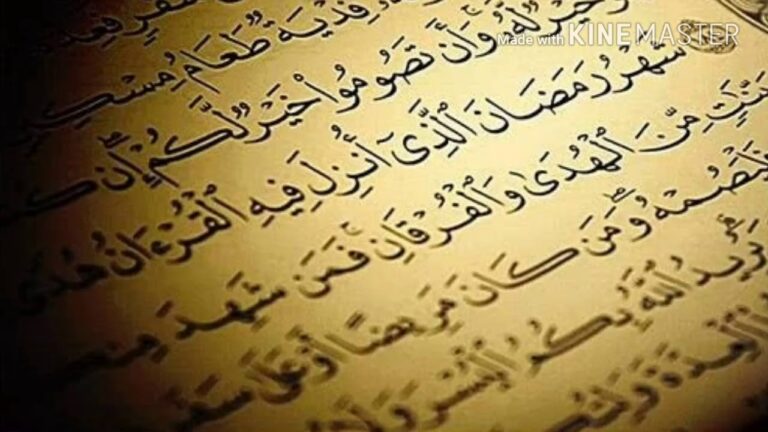 Made with KINEMASTER
فِدْيَةٌ طَعَامُ مِسْكِينٍ
خَيْرٌ لَّهُۥ ۚ وَأَن تَصُومُوا۟ خَيْرٌ لَّكُمْ ۖ إِن
شَهْرُ رَمَضَانَ ٱلَّذِىٓ أُنزِلَ فِيهِ ٱلْقُرْءَانُ هُدًى
مِّنَ ٱلْهُدَىٰ وَٱلْفُرْقَانِ ۚ فَمَن شَهِدَ
فَلْيَصُمْهُ ۖ وَمَن كَانَ مَرِيضًا أَوْ عَلَىٰ سَفَرٍ
يُرِيدُ ٱللَّهُ بِكُمُ ٱلْيُسْرَ وَلَا